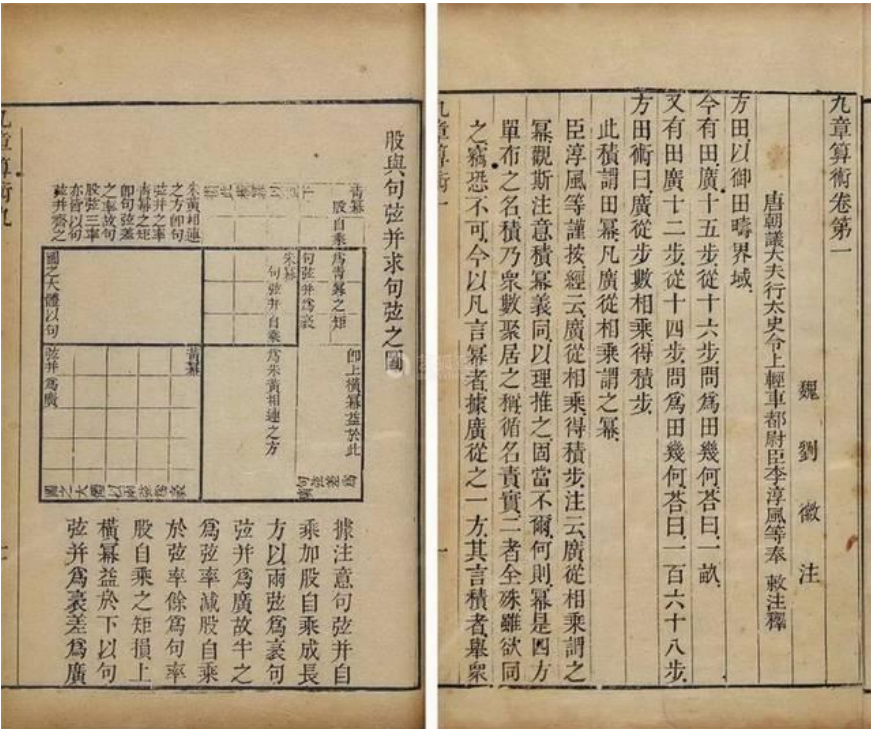 九章算術卷第一
魏劉徽注
唐朝議大夫行太史令上輕車都尉臣李淳風等奉 敕注釋
方田以御田疇界域
今有田廣十五步從十六步問爲田幾何荅曰一畝
又有田廣十二步從十四步問爲田幾何荅曰一百六十八步
方田術曰廣從步數相乘得積步
此積謂田冪凡廣從相乘謂之冪
臣淳風等謹按經云廣從相乘得積步注云廣從相乘謂之
冪觀斯注意積冪義同以理推之固當不爾何則冪是四方
單布之名積乃衆數聚居之稱循名責實二者全殊雖欲同
之竊恐不可今以凡言冪者據廣從之一方其言積者舉衆
九章算術一
一
股與句弦并求句弦之圖
青冪
股自乘爲青冪之矩
卽上橫冪益於此
句弦并爲袤
朱冪
句弦并自乘爲朱黃相連之方
朱黃相連
之方卽句
弦并之率
青冪之矩
卽句弦差
之率故句
股弦三率
亦皆以句
弦并齊之
圖之大體以句
弦并爲廣
青冪
圖之大體以兩弦爲袤
據注意句弦并自
乘加股自乘成長
方以兩弦爲袤句
弦并爲廣故半之
爲弦率減股自乘
於弦率餘爲句率
股自乘之矩損上
橫冪益於下以句
弦并爲袤差爲廣
九章算術九